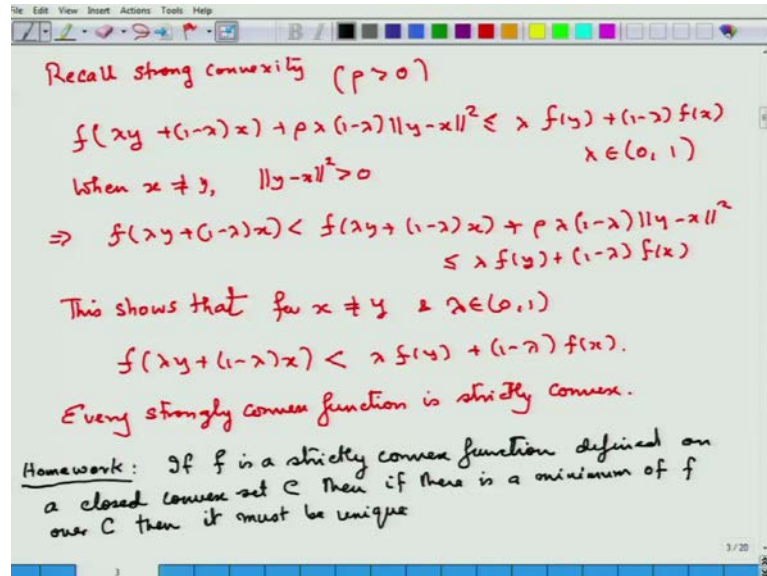 File Edit View Insert Actions Tools Help
Recall strong convexity (ρ>0)
f(λy +(1-λ)x) + ρλ(1-λ)||y-x||² ≤ λ f(y) + (1-λ) f(x)
λ∈(0, 1)
When x ≠ y, ||y-x||² > 0
⇒ f(λy+(1-λ)x) < f(λy+(1-λ)x) + ρλ(1-λ)||y-x||²
≤ λ f(y) + (1-λ) f(x)
This shows that for x ≠ y & λ∈(0,1)
f(λy+(1-λ)x) < λ f(y) + (1-λ) f(x).
Every strongly convex function is strictly convex.
Homework: If f is a strictly convex function defined on
a closed convex set C then if there is a minimum of f
over C then it must be unique
3/20
3